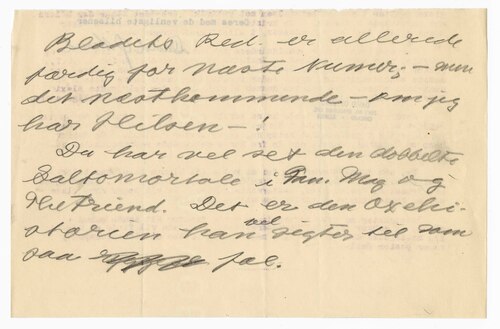 Bladets Red. er allerede
færdig for næste Numer; – men
det næstkommende – om jeg
har Hilsen – !
Du har vel set den dobbelte
Saltomortale i Inn. Mag og i
The Friend. Det er den Oxehi-
storien han vel sigter til som
saa fol.